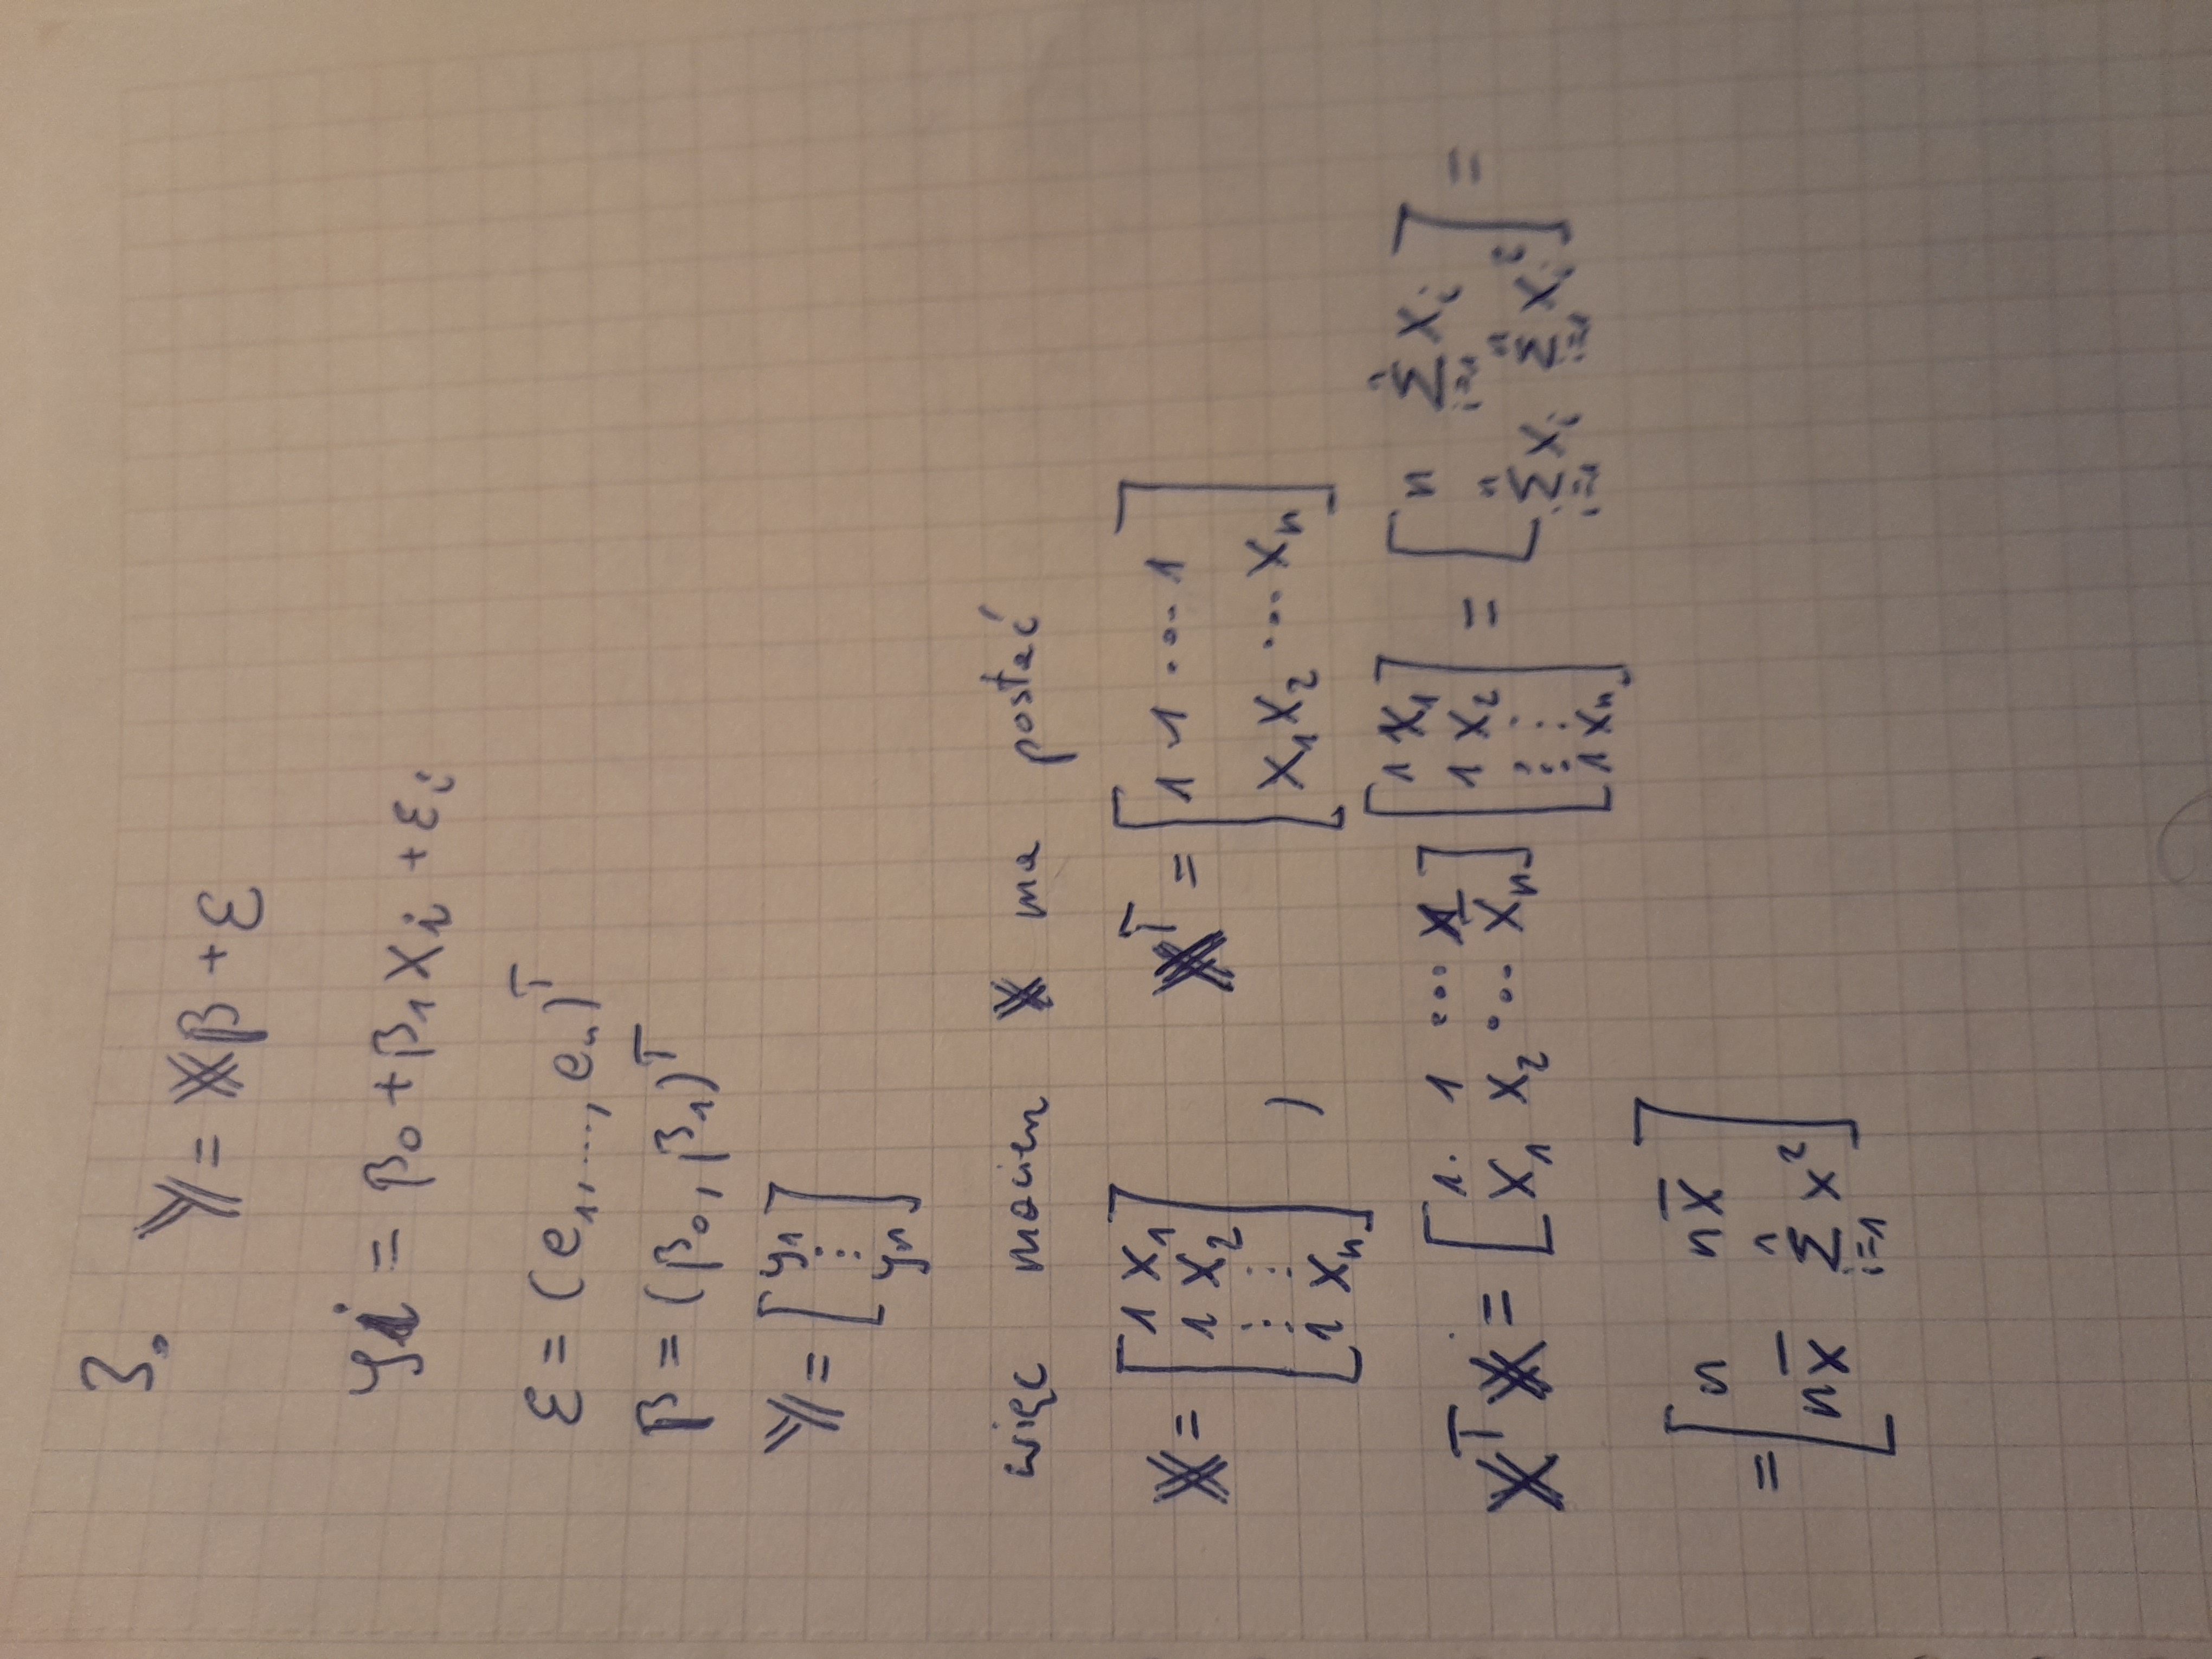 3.
𝕐 = 𝕏β + ε
yi = β₀ + β₁ xᵢ + εᵢ
ε = (e₁, ..., eₙ)ᵀ
β = (β₀, β₁)ᵀ
𝕐 = [y₁ ⋮ yₙ]
więc macierz 𝕏 ma postać
𝕏 = [1 x₁; 1 x₂; ⋮ ⋮; 1 xₙ] , 𝕏ᵀ = [1 1 ... 1; x₁ x₂ ... xₙ]
𝕏ᵀ𝕏 = [1 1 ... 1; x₁ x₂ ... xₙ] [1 x₁; 1 x₂; ⋮ ⋮; 1 xₙ] = [n Σⁿᵢ₌₁ xᵢ; Σⁿᵢ₌₁ xᵢ Σⁿᵢ₌₁ xᵢ²] =
= [n nx̄; nx̄ Σⁿᵢ₌₁ x²]